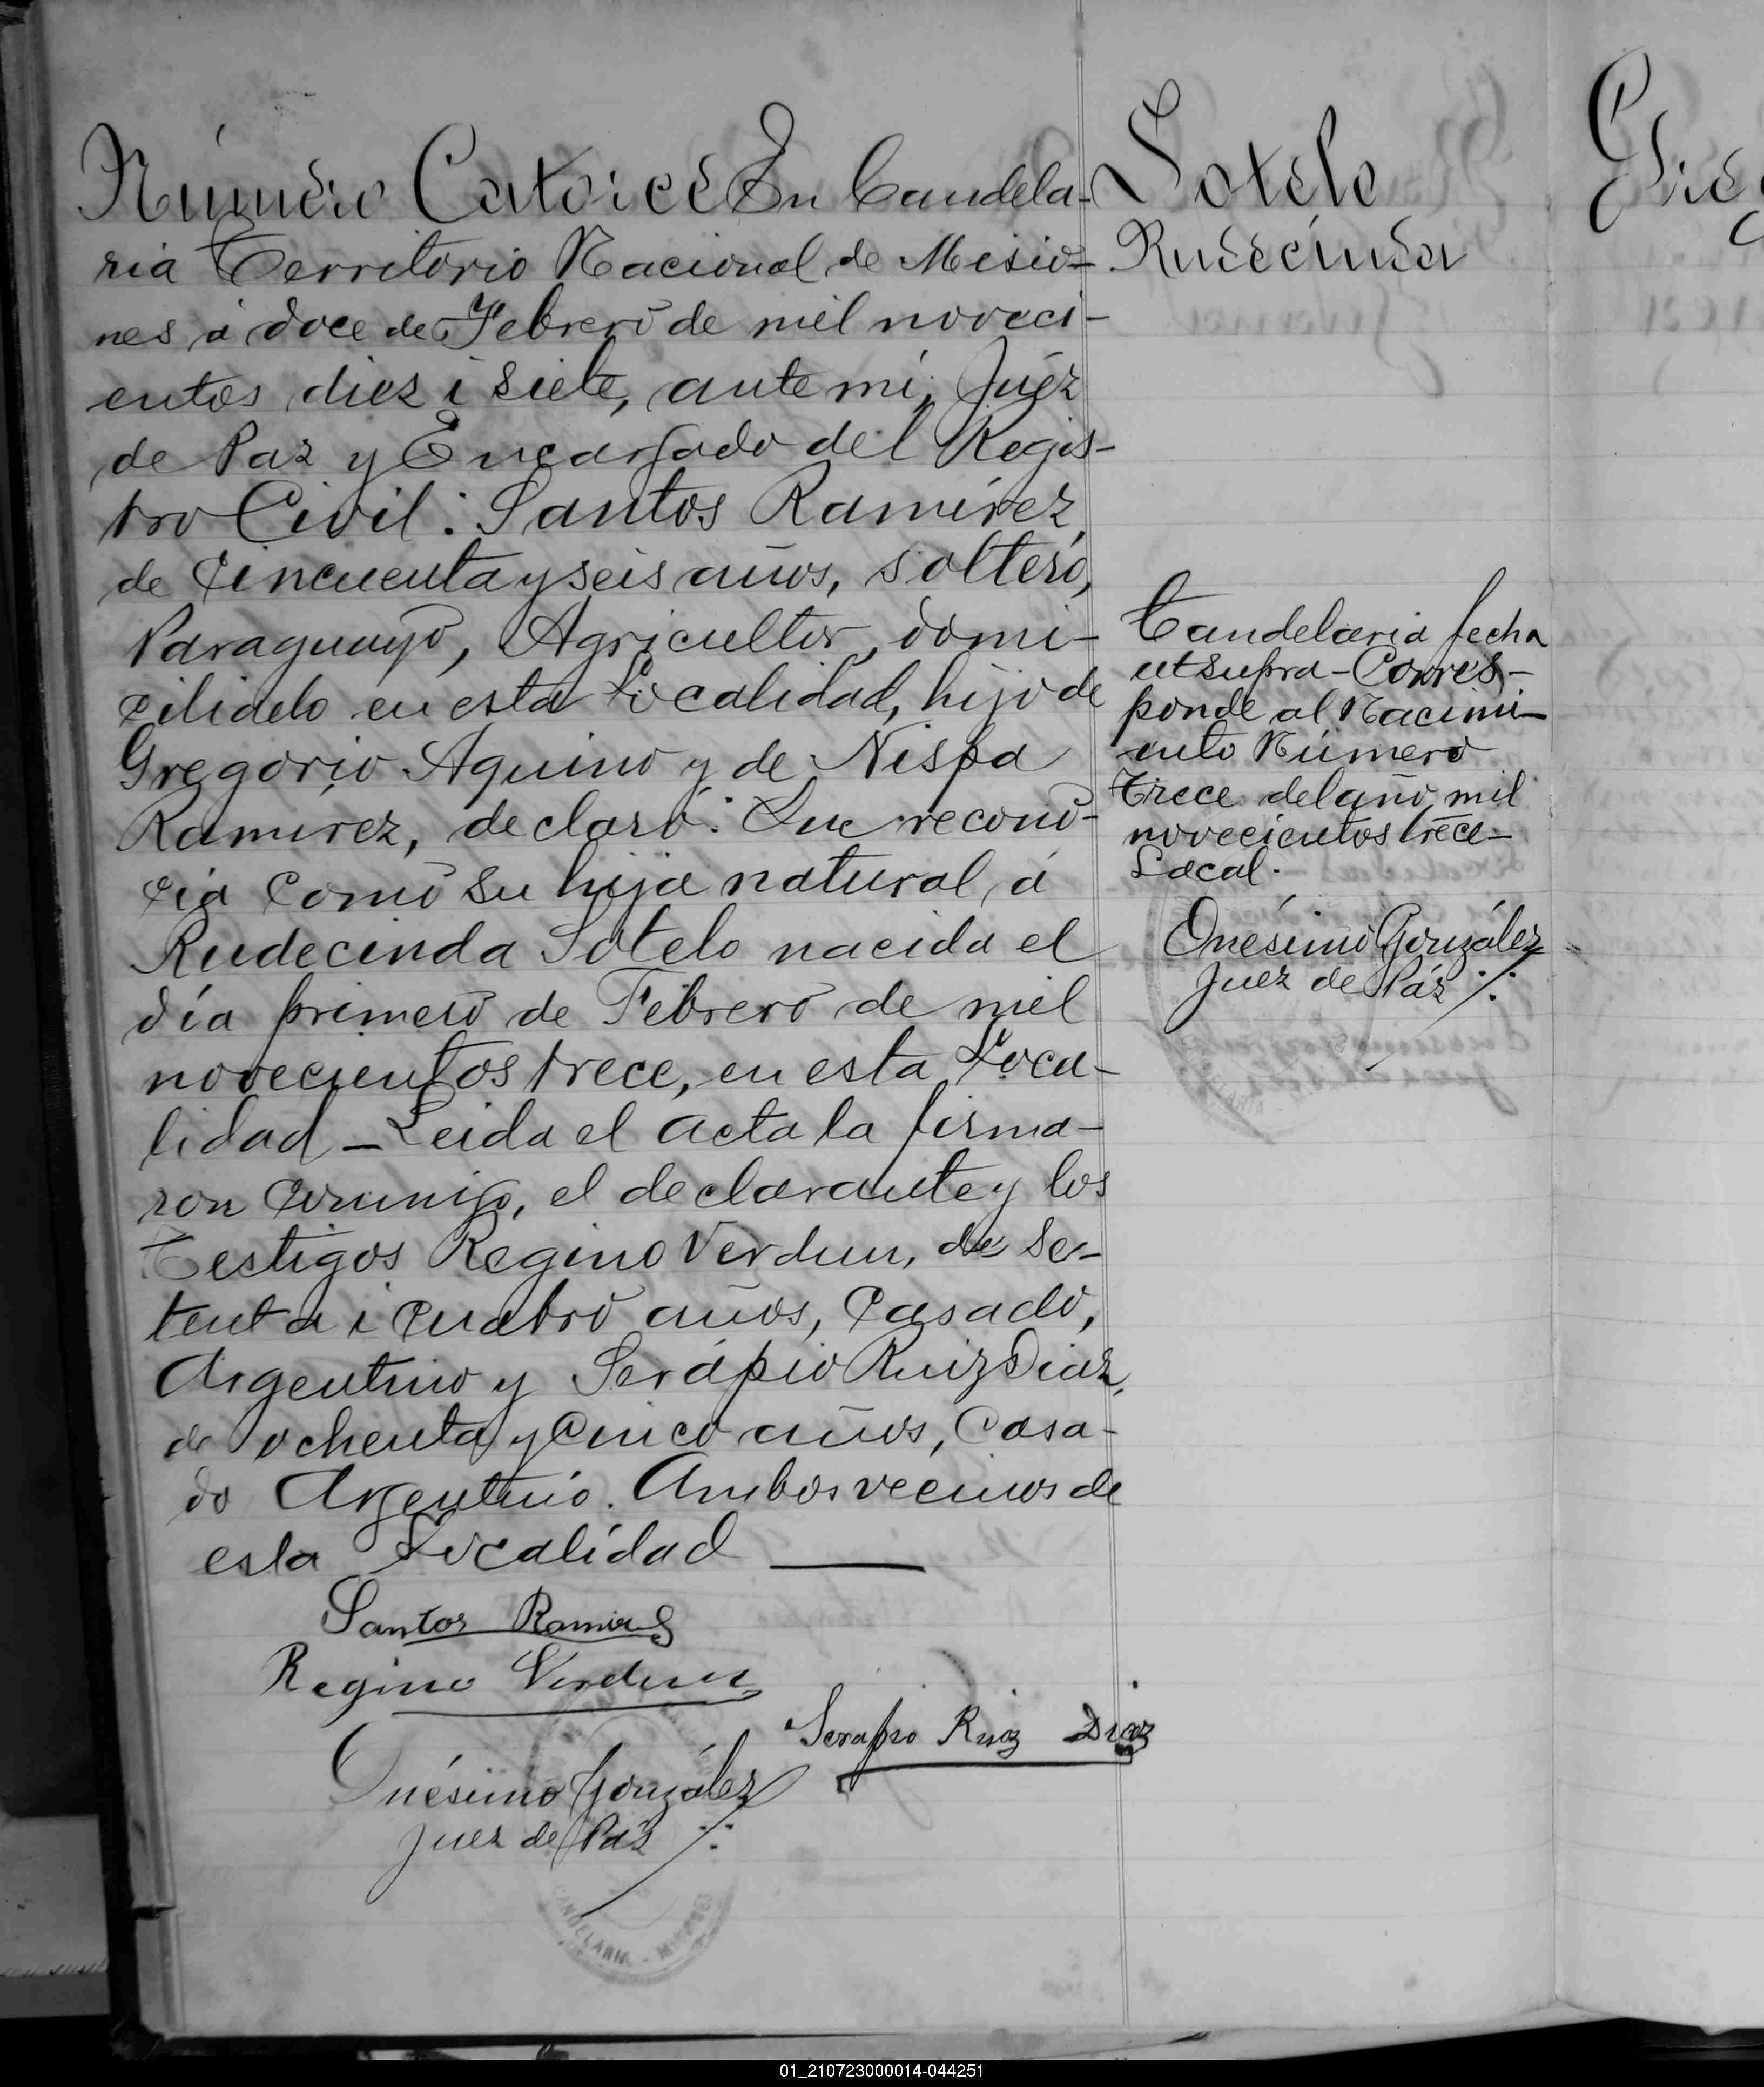 Número Catorce En Candela-
ria Territorio Nacional de Misio-
nes á doce de Febrero de mil noveci-
entos diez i siete, ante mi, Juéz
de Paz y Encargado del Regis-
tro Civil: Santos Ramírez,
de cincuenta y seis años, soltero,
Paraguayo, Agricultor, domi-
ciliado en esta Localidad, hijo de
Gregorio Aquino y de Nispa
Ramírez, declaró: Que recono-
cia como su hija natural, á
Rudecinda Sotelo nacida el
día primero de Febrero de mil
novecientos trece, en esta Loca-
lidad - Leida el acta la firma-
ron conmigo, el declarante y los
Testigos Regino Verdun, de se-
tenta i cuatro años, casado,
Argentino y Serápio Ruiz Diaz,
de ochenta y cinco años, casa-
do Argentino. Ambos vecinos de
esta Localidad
Santos Ramires
Regino Verdun
Serapio Ruiz Diaz
Onésimo González
Juez de Páz
CANDELARIA - MISIONES
Sotelo
Rudecinda
Candelaria fecha
ut supra - Corres-
ponde al Nacimi-
ento Número
Trece del año mil
novecientos trece -
Local.
Onésimo González
Juez de Páz
01_210723000014-044251